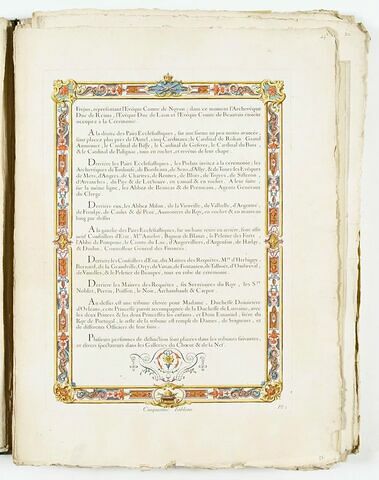 Frejus, représentant l'Evêque Comte de Noyon; dans ce moment l'Archevêque
Duc de Reims, l'Evêque Duc de Laon et l'Evêque Comte de Beauvais étoient
occupez à la Cérémonie.
A la droite des Pairs Ecclésiastiques, sur une forme un peu moins avancée,
sont placez plus près de l'Autel, cinq Cardinaux; le Cardinal de Rohan Grand
Aumonier, le Cardinal de Bissy, le Cardinal de Gesvres, le Cardinal du Bois,
& le Cardinal de Polignac, tous en rochet, et revetus de leur chape.
Derriere les Pairs Ecclésiastiques, les Prelats invitez à la ceremonie; les
Archevêques de Toulouse, de Bordeaux, de Sens, d'Alby, & de Tours les Evêques
de Metz, d'Angers, de Chartres, de Rennes, de Blois, de Troyes, de Sisteron,
d'Avranches, du Puy & de en camail & en rochet. A leur suite
sur la même ligne, les Abbez de Beuvron & de Premeaux, Agents Generaux
du Clergé.
Derriere eux, les Abbez Milon, de la Vieuville, de Valbelle, d'Argentré,
de Froulay, de Caulet & de Pezé, Aumoniers du Roy, en rochet & en manteau
long par dessus.
A la gauche des Pairs Ecclésiastiques, sur un banc un en arriere, sont assis
Conseillers d'Etat, Mrs. Amelot, Bignon de Blanzi, le Peletier des Forts,
l'Abbé de Pomponne, le Comte du Luc, d'Angervilliers, d'Argenson, de Harlay,
& Dodun, Controlleur General des Finances.
Derriere les Conseillers d'Etat, dix Maitres des Requêtes, Mrs. d'Herbigny,
Bernard, de la Grandville, Orry, de Vatan, de Fontanieu, de Talhouet, d'Ombreval,
de Vanolles, & le Peletier de Beaupré, tous en robe de ceremonie.
Derriere les Maitres des Requêtes, six Secretaires du Roy, les Srs.
Noblet, Perrin, Poisson, le Noir, Archambault & Carpot.
Au dessus est une tribune elevée pour Madame, Duchesse Douairiere
d'Orléans, cette Princesse paroit accompagnée de la Duchesse de Lorraine, avec
les deux Princes & les deux Princesses ses enfants, et Dom Emanuel, frere du
Roy de Portugal, le reste de la tribune est remply de Dames, de Seigneurs, et
de différents Officiers de leur suite.
Plusieurs personnes de distinction sont placées dans les tribunes suivantes,
et divers spectateurs dans les Galleries du Choeur & de la Nef.
Cinquieme Tableau.